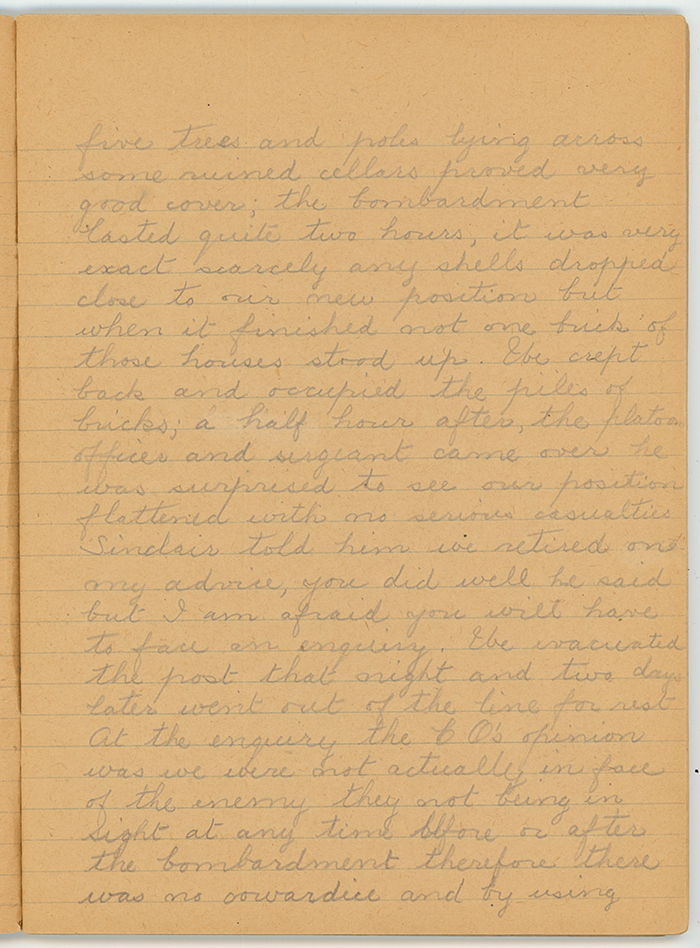 five trees and poles lying across
some ruined cellars proved very
good cover; the bombardment
lasted quite two hours, it was very
exact scarcely any shells dropped
close to our new position but
when it finished not one brick of
those houses stood up. We crept
back and occupied the piles of
bricks; a half hour after, the platoon
officer and sergeant came over he
was surprised to see our position
flattened with no serious casualties
Sinclair told him we retired on
my advice, you did well he said
but I am afraid you will have
to face an enquiry. We evacuated
the post that night and two days
later went out of the line for rest
At the enquiry the C O's opinion
was we were not actually in face
of the enemy they not being in
sight at any time before or after
the bombardment therefore there
was no cowardice and by using